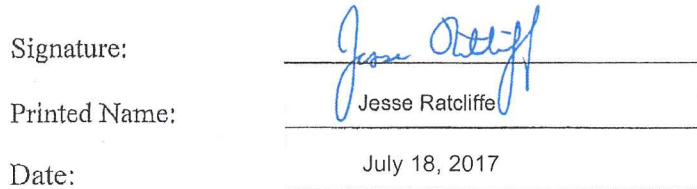 Signature: Jesse Ratcliff
Printed Name: Jesse Ratcliffe
Date: July 18, 2017